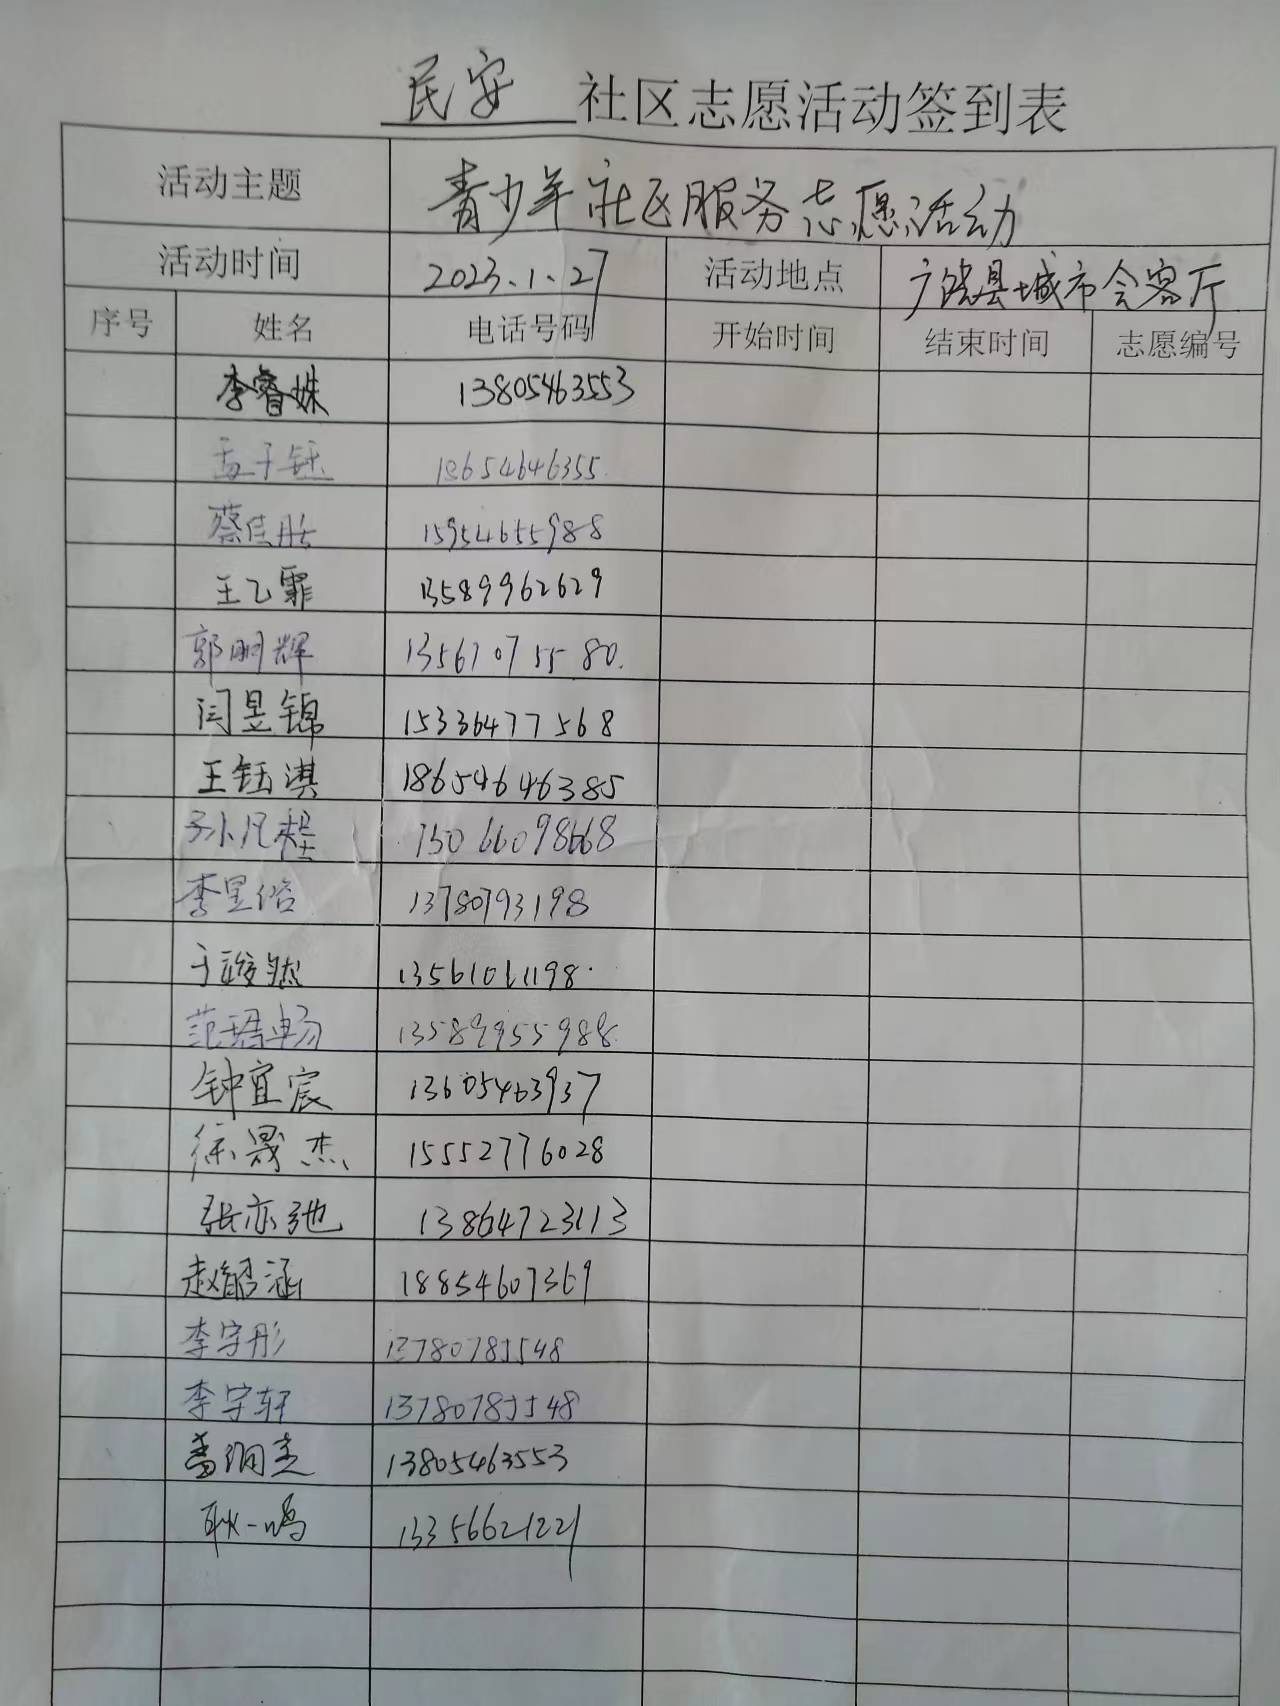 民安 社区志愿活动签到表
活动主题 青少年社区服务志愿活动
活动时间 2023.1.27 活动地点 广饶县城市会客厅
序号 姓名 电话号码 开始时间 结束时间 志愿编号
李睿姝 13805463553
孟子钰 18654646355
蔡佳彤 15954655988
王乙霏 13589962629
郭明辉 13561075580
闫昱锦 15336477568
王钰淇 18654646385
孙凡 15066098668
李昱 13780793198
于竣然 13561061198
范珺畅 13589955988
钟宜宸 13605463937
徐晟杰 15552776028
张亦弛 13864723113
赵皓涵 18854607369
李宇彤 13780785548
李宇轩 13780785548
13805463553
耿一鸣 13356621221